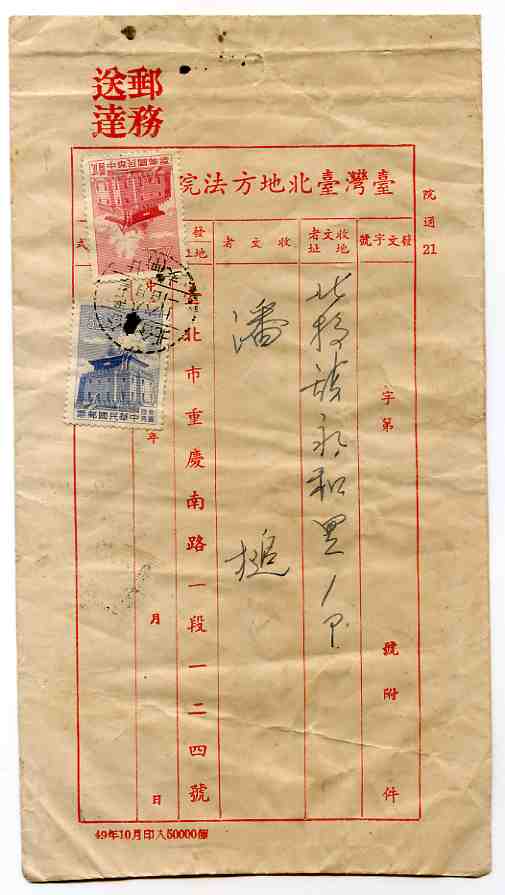 郵務
送達
臺灣臺北地方法院
院通21
發文字號
字第
號附
件
收文者地址
北投鎮永和里1戶
收文者
潘 槌
發
北市重慶南路一段一二四號
式
年 月 日
中華民國郵票
中華民國郵票
49年10月印入50000個